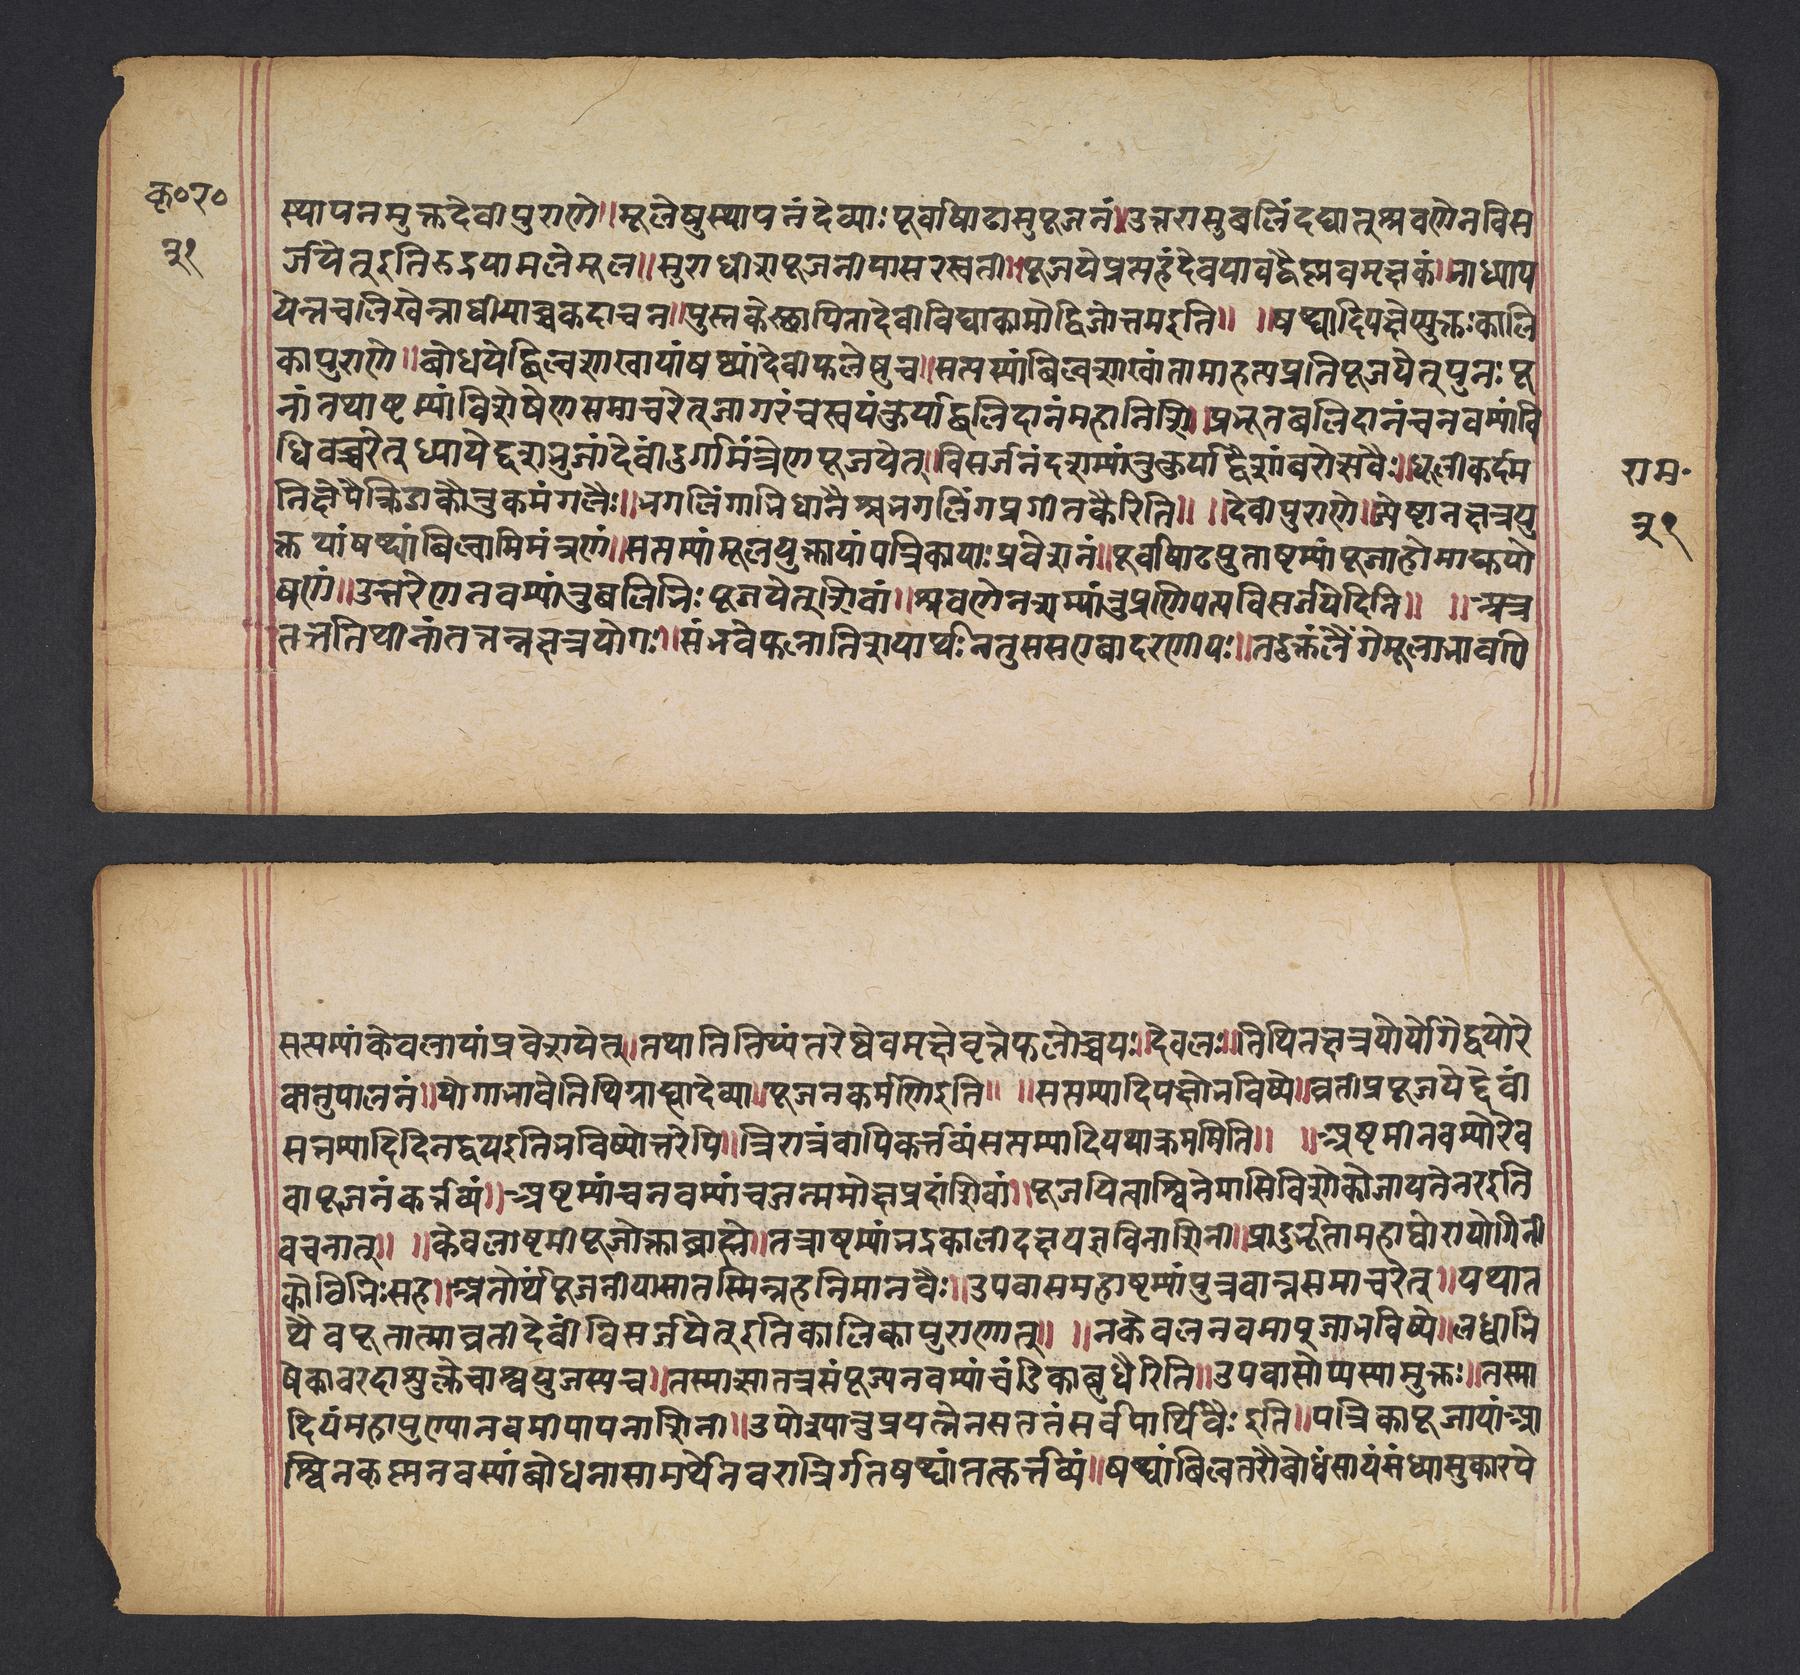 कृ०र०
२१
स्थापनमुक्तंदेवीपुराणे॥मूलेषुस्थापनंदेव्याःपूर्वाषाढासुपूजनं॥उत्तरासुबलिंदद्यात्श्रवणेनविस
र्जयेत्इतिरुद्रयामलेमूल॥सुराधीशपूजनीयासरस्वती॥पूजयेप्रत्यहंदेवयावद्वैष्णवमृक्षकं॥नाध्याप
येन्नचलिखेन्नाधीयाञ्चकदाचन॥पुस्तकेस्थापितादेवीविद्याकामोद्विजोत्तमइति॥ ॥षष्ठ्यादिपक्षेप्युक्तःकालि
कापुराणे॥बोधयेद्बिल्वशाखायांषष्ठ्यांदेवीफलेषुच॥सप्तम्यांबिल्वशाखांतामाहत्यप्रतिपूजयेत्पुनःपू
जांतथाष्टम्यांविशेषेणसमाचरेत्जागरंचस्वयंकुर्याद्बलिदानंमहानिशि॥प्रभूतबलिदानंचनवम्यांवि
धिवच्चरेत्ध्यायेद्दशभुजांदेवींदुर्गामंत्रेणपूजयेत्॥विसर्जनंदशम्यांतुकुर्याद्वैशांबरोत्सवैः॥धूलीकर्दम
निक्षेपैक्रिडाकौतुकमंगलैः॥भगलिंगाभिधानैश्चभगलिंगप्रगीतकैरिति॥ ॥देवीपुराणे॥ज्येष्ठानक्षत्रयु
क्तायांषष्ठ्यांबिल्वाभिमंत्रणं॥सप्तम्यांमूलयुक्तायांपत्रिकायाःप्रवेशनं॥पूर्वाषाढयुताष्टम्यांपूजाहोमाद्युपो
षणं॥उत्तरेणनवम्यांतुबलिभिःपूजयेत्शिवां॥श्रवणेनदशम्यांतुप्रणिपत्यविसर्जयेदिति॥ ॥अत्र
तत्तत्तिथीनांतत्तन्नक्षत्रयोगः॥संभवेफलातिशयार्थःनतुससएवादरणीयः॥तदुक्तंलैंगेमूलाभावेपि
राम·
२१
सप्तम्यांकेवलायांप्रवेशयेत्॥तथातितिथ्यंतरेष्वेवमृक्षेवृत्तेफलोच्चयः॥देवलः॥तिथिनक्षत्रयोर्योगेद्वयोरे
वानुपालनं॥योगाभावेतिथिग्राह्यादेव्या॥पूजनकर्मणिइति॥ ॥सप्तम्यादिपक्षोभविष्ये॥व्रतीप्रपूजयेद्देवीं
सप्तम्यादिदिनद्वयइतिभविष्योत्तरेपि॥त्रिरात्रंवापिकर्त्तव्यंसप्तम्यादियथाक्रममिति॥ ॥अष्टमीनवम्योरेव
वापूजनंकर्त्तव्यं॥अष्टम्यांचनवम्यांचजन्ममोक्षप्रदांशिवां॥पूजयित्वाश्विनेमासिविशोकोजायतेनरइति
वचनात्॥ ॥केवलाष्टमीपूजोक्ताब्राह्मे॥तत्राष्टम्यांभद्रकालीदक्षयज्ञविनाशिनी॥प्रादुर्भूतामहाघोरायोगिनी
कोटिभिःसह॥अतोर्थंपूजनीयासातस्मिन्नहनिमानवैः॥उपवासमहाष्टम्यांपुत्रवान्नसमाचरेत्॥यथात
थैवपूतात्माव्रतीदेवींविसर्जयेत्इतिकालिकापुराणात्॥ ॥नकेवलनवमीपूजाभविष्ये॥लब्धाभि
षेकावरदाशुक्लेचाश्वयुजस्यच॥तस्मात्सातत्रसंपूज्यनवम्यांचंडिकाबुधैरिति॥उपवासोप्यस्यामुक्तः॥तस्मा
दियंमहापुण्यानवमीपापनाशिनी॥उपोष्यातुप्रयत्नेनसततंसर्वपार्थिवैःइति॥पत्रिकापूजायांआ
श्विनकृष्णनवम्यांबोधनासामर्थ्येनवरात्रिर्गतषष्ठ्यांतत्कर्त्तव्यं॥षष्ठ्यांबिल्वतरौबोधंसायंसंध्यासुकारये